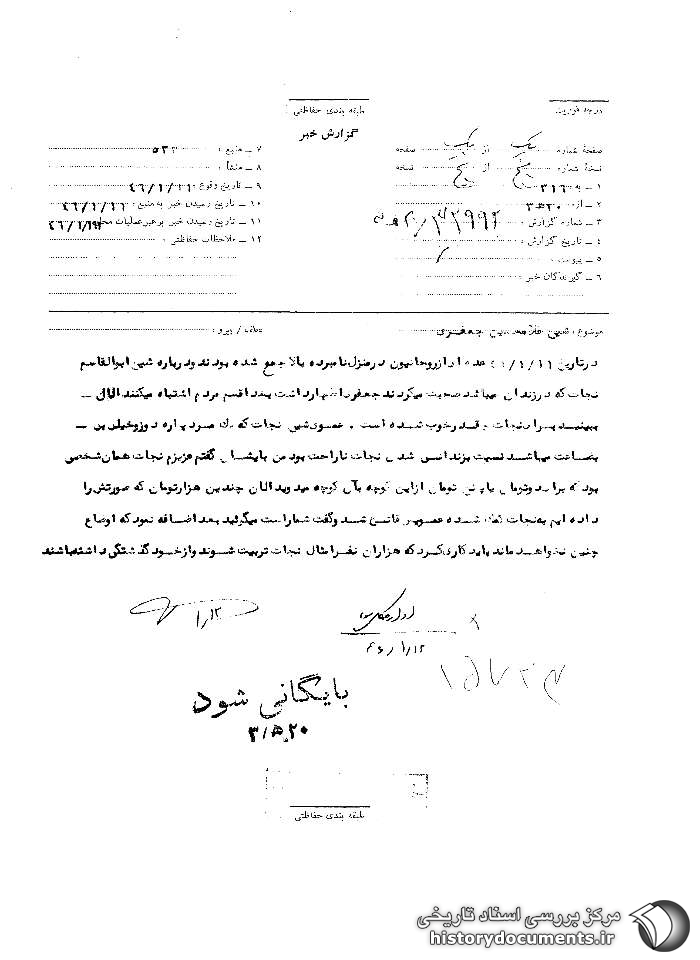 درجه فوریت
طبقه بندی حفاظتی
گزارش خبر
صفحهٔ شماره یک از یک صفحه
نسخهٔ شماره پنج از پنج نسخه
۱ ـ به ۳۱۶
۲ ـ از ۲۰ ه ۳
۳ ـ شماره گزارش
۴ ـ تاریخ گزارش
۵ ـ پیوست
۶ ـ گیرندگان خبر
۷ ـ منبع
۸ ـ منشأ
۹ ـ تاریخ وقوع ۴۶/۱/۱۱
۱۰ ـ تاریخ رسیدن خبر به منبع ۴۶/۱/۱۱
۱۱ ـ تاریخ رسیدن خبر برهبر عملیات محل
۱۲ ـ ملاحظات حفاظتی
موضوع : شیخ غلامحسین جعفری
عطف / پیرو
در تاریخ ۴۶/۱/۱۱ عده ای از روحانیون در منزل نامبرده بالا جمع شده بودند و درباره شیخ ابوالقاسم
نجات که در زندان میباشد صحبت میکردند جعفری اظهار داشت بعدا قسم مردم اشتباه میکنند الان
ببینید پسر نجات چقدر خوب شده است . عموی شیخ نجات که یک مرد پاره دوز و خیلی بی
بضاعت میباشد نسبت بزندانی شدن نجات ناراحت بود من بایشان گفتم عزیزم نجات همان شخصی
بود که برای دو تومان یا پنج تومان از این کوچه بآن کوچه میدوید الان چندین هزار تومان که صورتش را
داده ایم به نجات کمک شده عمویش قانع شد و گفت شما راست میگوئید بعد اضافه نمود که اوضاع
چنین نخواهد ماند باید کاری کرد که هزاران نفر امثال نجات تربیت شوند و از خود گذشتگی داشته باشند
۱/۱۲
۴۶/۱/۱۲
بایگانی شود
۲۰ ه ۳
طبقه بندی حفاظتی
مرکز بررسی اسناد تاریخی
historydocuments.ir